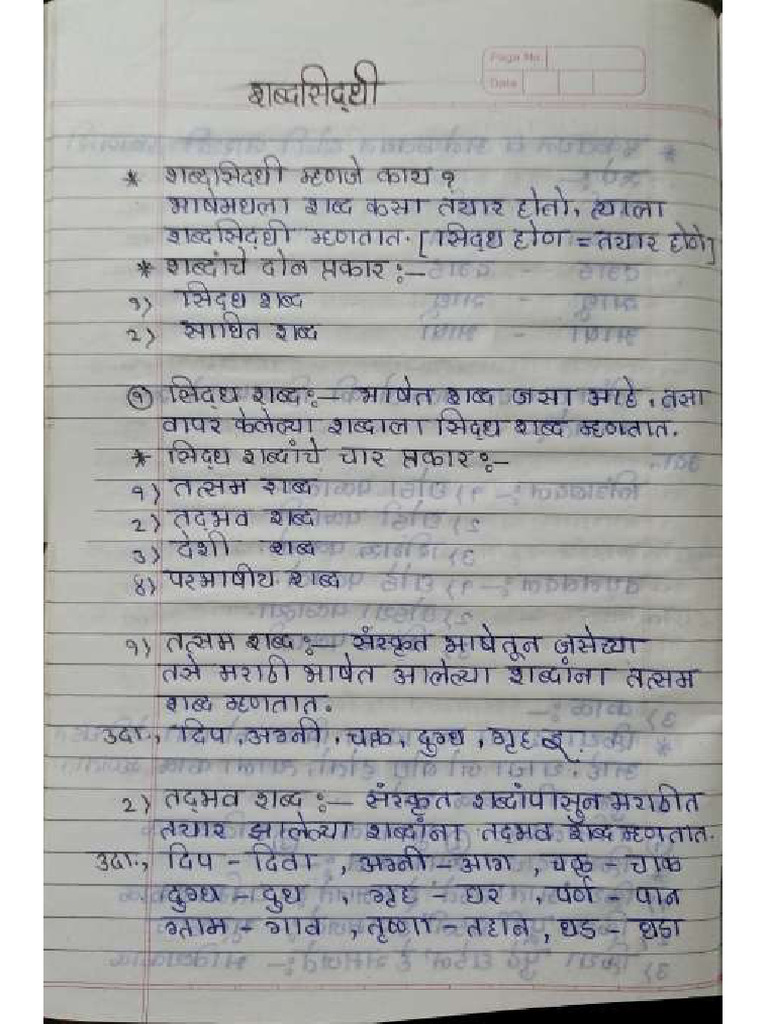 Page No.
Date
शब्दसिद्धी
* शब्दसिद्धी म्हणजे काय ?
भाषेमधला शब्द कसा तयार होतो, त्याला
शब्दसिद्धी म्हणतात. [सिद्ध होणे = तयार होणे]
* शब्दांचे दोन प्रकार :-
१) सिद्ध शब्द
२) साधित शब्द
१) सिद्ध शब्द :- भाषेत शब्द जसा आहे, तसा
वापर केलेल्या शब्दाला सिद्ध शब्द म्हणतात.
* सिद्ध शब्दांचे चार प्रकार :-
१) तत्सम शब्द
२) तद्भव शब्द
३) देशी शब्द
४) परभाषीय शब्द
१) तत्सम शब्द :- संस्कृत भाषेतून जसेच्या
तसे मराठी भाषेत आलेल्या शब्दांना तत्सम
शब्द म्हणतात.
उदा., दिप, अग्नी, चक्र, दुग्ध, गृह इ.
२) तद्भव शब्द :- संस्कृत शब्दांपासुन मराठीत
तयार झालेल्या शब्दांना तद्भव शब्द म्हणतात.
उदा., दिप - दिवा, अग्नी - आग, चक्र - चाक
दुग्ध - दुध, गृह - घर, पर्ण - पान
ग्राम - गाव, तृष्णा - तहान, घड - घडा